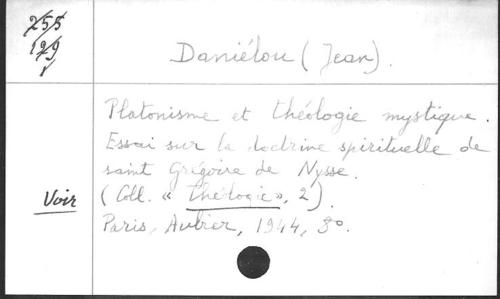 255
129
Daniélou (Jean).
Platonisme et théologie mystique.
Essai sur la doctrine spirituelle de
saint Grégoire de Nysse.
Voir
(Coll. « Théologie », 2).
Paris, Aubier, 1944, 8º.